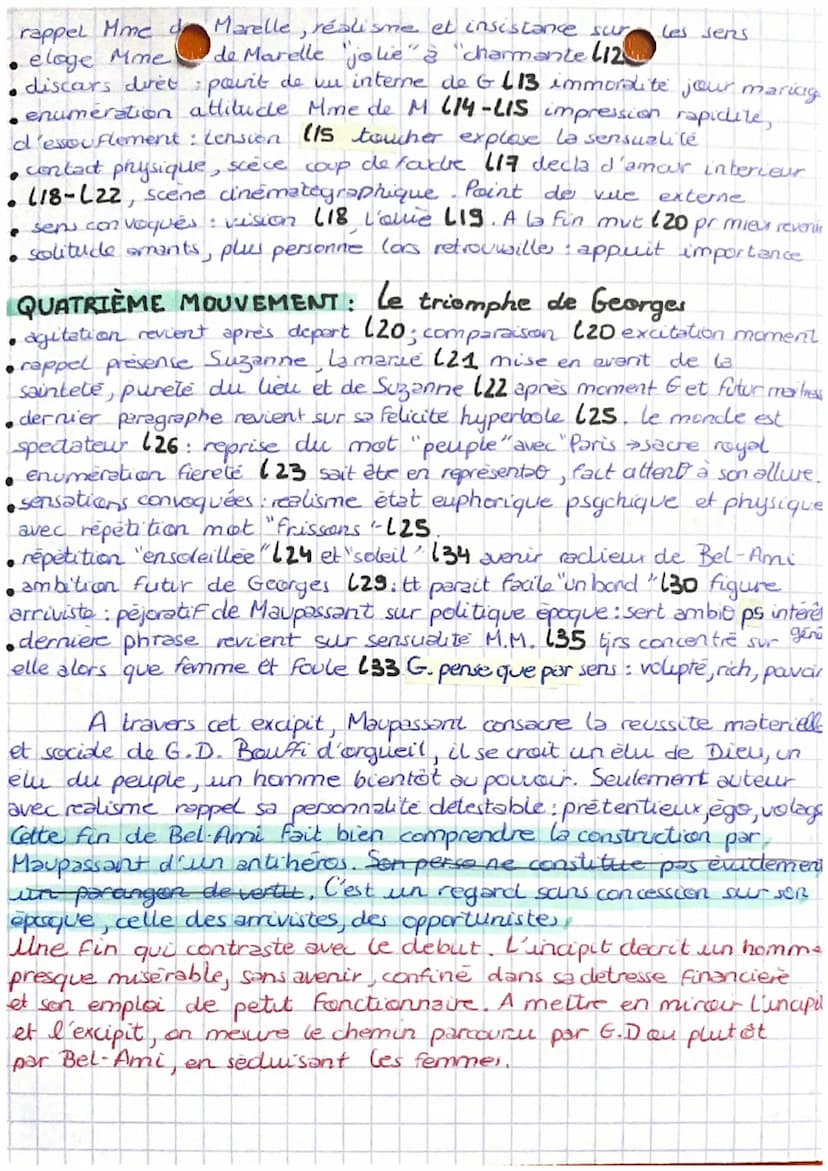 rappel Mme de Marelle, réalisme et insistance sur les sens
• eloge Mme de Marelle "jolie" à "charmante L12
• discars dirèt : point de vu interne de G L13 immoralité jour mariag
• enumération attitude Mme de M L14-L15 impression rapidite,
d'essouflement : tension L15 toucher explose la sensualité
• contact physique, scèce coup de faudre L17 decla d'amour interieur
• L18-L22, scène cinématographique. Point de vue externe
• sens convoqués : vision L18, l'ouïe L19. A la fin mvt L20 pr mieux revenir
• solitude amants, plus personne lors retrouvailles : appuit importance
QUATRIÈME MOUVEMENT : Le triomphe de Georges
• agitation revient après depart L20 ; comparaison L20 excitation moment
• rappel présense Suzanne, la mariée L21 mise en avant de la
sainteté, pureté du lieu et de Suzanne L22 après moment G et futur maitress
• dernier paragraphe revient sur sa felicité hyperbole L25. Le monde est
spectateur L26 : reprise du mot "peuple" avec "Paris → sacre royal
• enumération fiereté L23 sait être en représentao, fait attent° à son allure.
• sensations convoquées : realisme état euphorique psychique et physique
avec répétition mot "frissons"-L25.
• répétition "ensoleillée" L24 et "soleil" L34 avenir radieux de Bel-Ami
• ambition futur de Georges L29 : tt parait facile "un bond" L30 figure
arriviste : péjoratif de Maupassant sur politique époque : sert ambi° ps intérêt
géné
• dernière phrase revient sur sensualité M.M. L35 tjrs concentré sur
elle alors que femme et foule L33 G. pense que par sens : volupté, rich, pouvoir
A travers cet excipit, Maupassant consacre la reussite matérielle
et sociale de G.D. Bouffi d'orgueil, il se croit un élu de Dieu, un
élu du peuple, un homme bientôt au pouvoir. Seulement auteur
avec realisme rappel sa personnalité détestable : prétentieux, égo, volage
Cette fin de Bel-Ami fait bien comprendre la construction par
Maupassant d'un antihéros. Son perso ne constitue pas évidement
un parangon de vertu. C'est un regard sans concession sur son
époque, celle des arrivistes, des opportunistes,
Une fin qui contraste avec le debut. L'incipit decrit un homme
presque misérable, sans avenir, confiné dans sa detresse financière
et son emploi de petit fonctionnaire. A mettre en miroir l'incipit
et l'excipit, on mesure le chemin parcouru par G.D ou plutôt
par Bel-Ami, en séduisant les femmes.